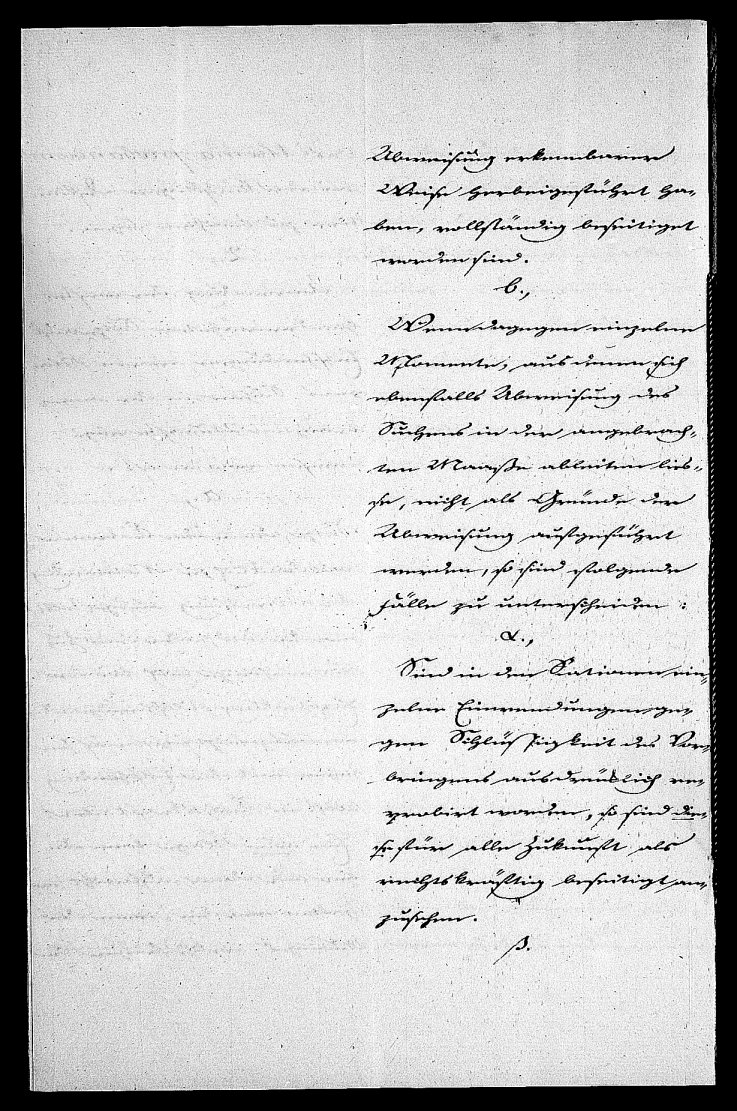 Abweisung erkennbarer
Weise herbeigeführt ha-
ben, vollständig beseitiget
worden sind.
b.,
Wenn dagegen einzelne
Momente, aus denen sich
ebenfalls Abweisung des
Suchens in der angebrach-
ten Maaße ableiten lies-
se, nicht als Gründe der
Abweisung aufgeführt
werden, so sind folgende
Fälle zu unterscheiden:
α.,
Sind in den Rationen ein-
zelne Einwendungen ge-
gen Schlüssigkeit des Vor-
bringens ausdrücklich re-
probirt worden, so sind die-
se für alle Zukunft als
rechtskräftig beseitigt an-
zusehen.
β.